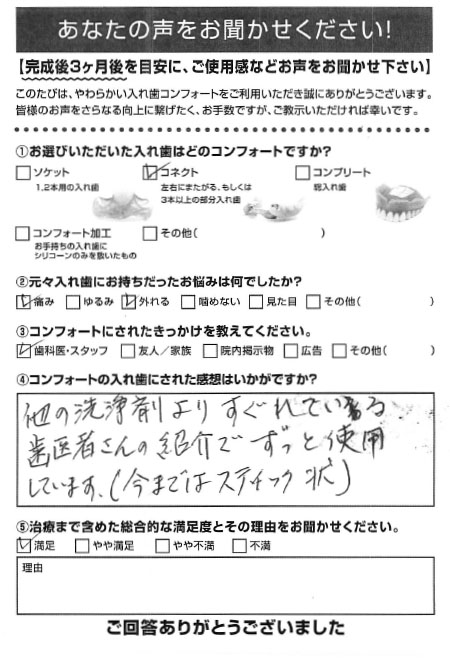 あなたの声をお聞かせください!
【完成後3ヶ月後を目安に、ご使用感などお声をお聞かせ下さい】
このたびは、やわらかい入れ歯コンフォートをご利用いただき誠にありがとうございます。
皆様のお声をさらなる向上に繋げたく、お手数ですが、ご教示いただければ幸いです。
①お選びいただいた入れ歯はどのコンフォートですか?
ソケット
1,2本用の入れ歯
コネクト
左右にまたがる、もしくは
3本以上の部分入れ歯
コンプリート
総入れ歯
コンフォート加工
お手持ちの入れ歯に
シリコーンのみを敷いたもの
その他( )
②元々入れ歯にお持ちだったお悩みは何でしたか?
痛み ゆるみ 外れる 噛めない 見た目 その他( )
③コンフォートにされたきっかけを教えてください。
歯科医・スタッフ 友人/家族 院内掲示物 広告 その他( )
④コンフォートの入れ歯にされた感想はいかがですか?
他の洗浄剤よりすぐれている
歯医者さんの紹介でずっと使用
しています。(今まではスティック状)
⑤治療まで含めた総合的な満足度とその理由をお聞かせください。
満足 やや満足 やや不満 不満
理由
ご回答ありがとうございました